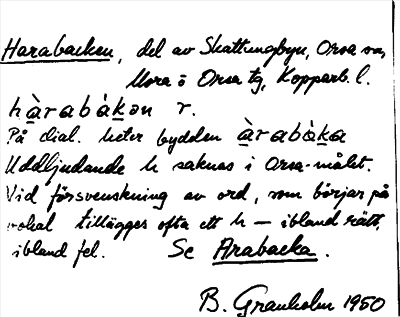 Harabacken, del av Skattungbyn, Orsa sn,
Mora o Orsa tg, Kopparb. l.
hàrabàkən r.
På dial. heter bydelen àrabàka
Uddljudande h saknas i Orsa-målet.
Vid försvenskning av ord, som börjar på
vokal tillägges ofta ett h – ibland rätt,
ibland fel. Se Arabacka.
B. Granholm 1950